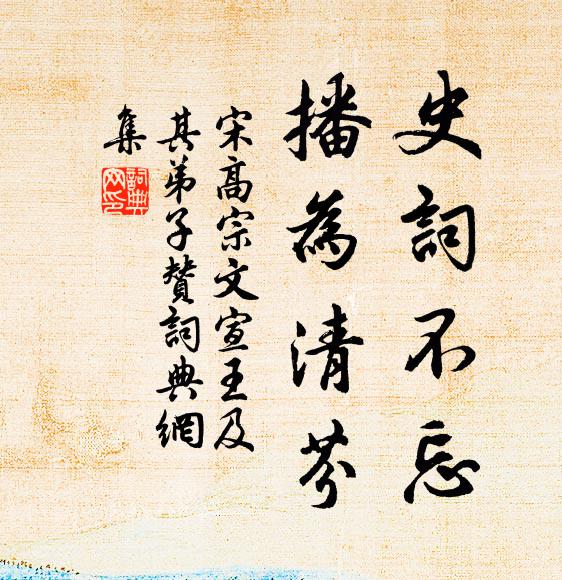 史詞不忘
播為清芬
宋高宗文宣王及
其弟子贊詞典網
集
詞典網印